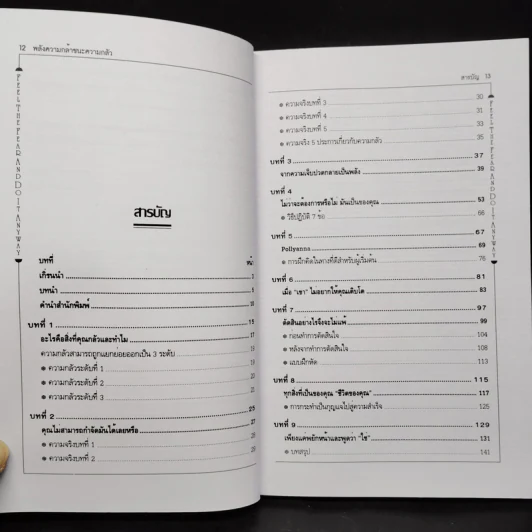 12 พลังความกล้าชนะความกลัว
FEEL THE FEAR AND DO IT ANYWAY
สารบัญ
บทที่
เกริ่นนำ
บทนำ
คำนำสำนักพิมพ์
บทที่ 1 15
อะไรคือสิ่งที่คุณกลัวและทำไม
ความกลัวสามารถถูกแยกย่อยออกเป็น 3 ระดับ
● ความกลัวระดับที่ 1
● ความกลัวระดับที่ 2
● ความกลัวระดับที่ 3
บทที่ 2 25
คุณไม่สามารถกำจัดมันได้เลยหรือ
● ความจริงบทที่ 1
● ความจริงบทที่ 2
สารบัญ 13
FEEL THE FEAR AND DO IT ANYWAY
● ความจริงบทที่ 3 30
● ความจริงบทที่ 4 31
● ความจริงบทที่ 5 33
● ความจริง 5 ประการเกี่ยวกับความกลัว 35
บทที่ 3 37
จากความเจ็บปวดกลายเป็นพลัง 39
บทที่ 4
ไม่ว่าจะต้องการหรือไม่ มันเป็นของคุณ 53
● วิธีปฏิบัติ 7 ข้อ 66
บทที่ 5 67
Pollyanna 69
● การฝึกคิดในทางที่ดีสำหรับผู้เริ่มต้น 76
บทที่ 6 81
เมื่อ "เขา" ไม่อยากให้คุณเติบโต 83
บทที่ 7 97
ตัดสินอย่างไรจึงจะไม่แพ้ 99
● ก่อนทำการตัดสินใจ 104
● หลังจากทำการตัดสินใจ 108
● แบบฝึกหัด 113
บทที่ 8 115
ทุกสิ่งที่เป็นของคุณ "ชีวิตของคุณ" 117
● การกระทำเป็นกุญแจไปสู่ความสำเร็จ 125
บทที่ 9 129
เพียงแค่พยักหน้าและพูดว่า "ใช่" 131
● บทสรุป 141